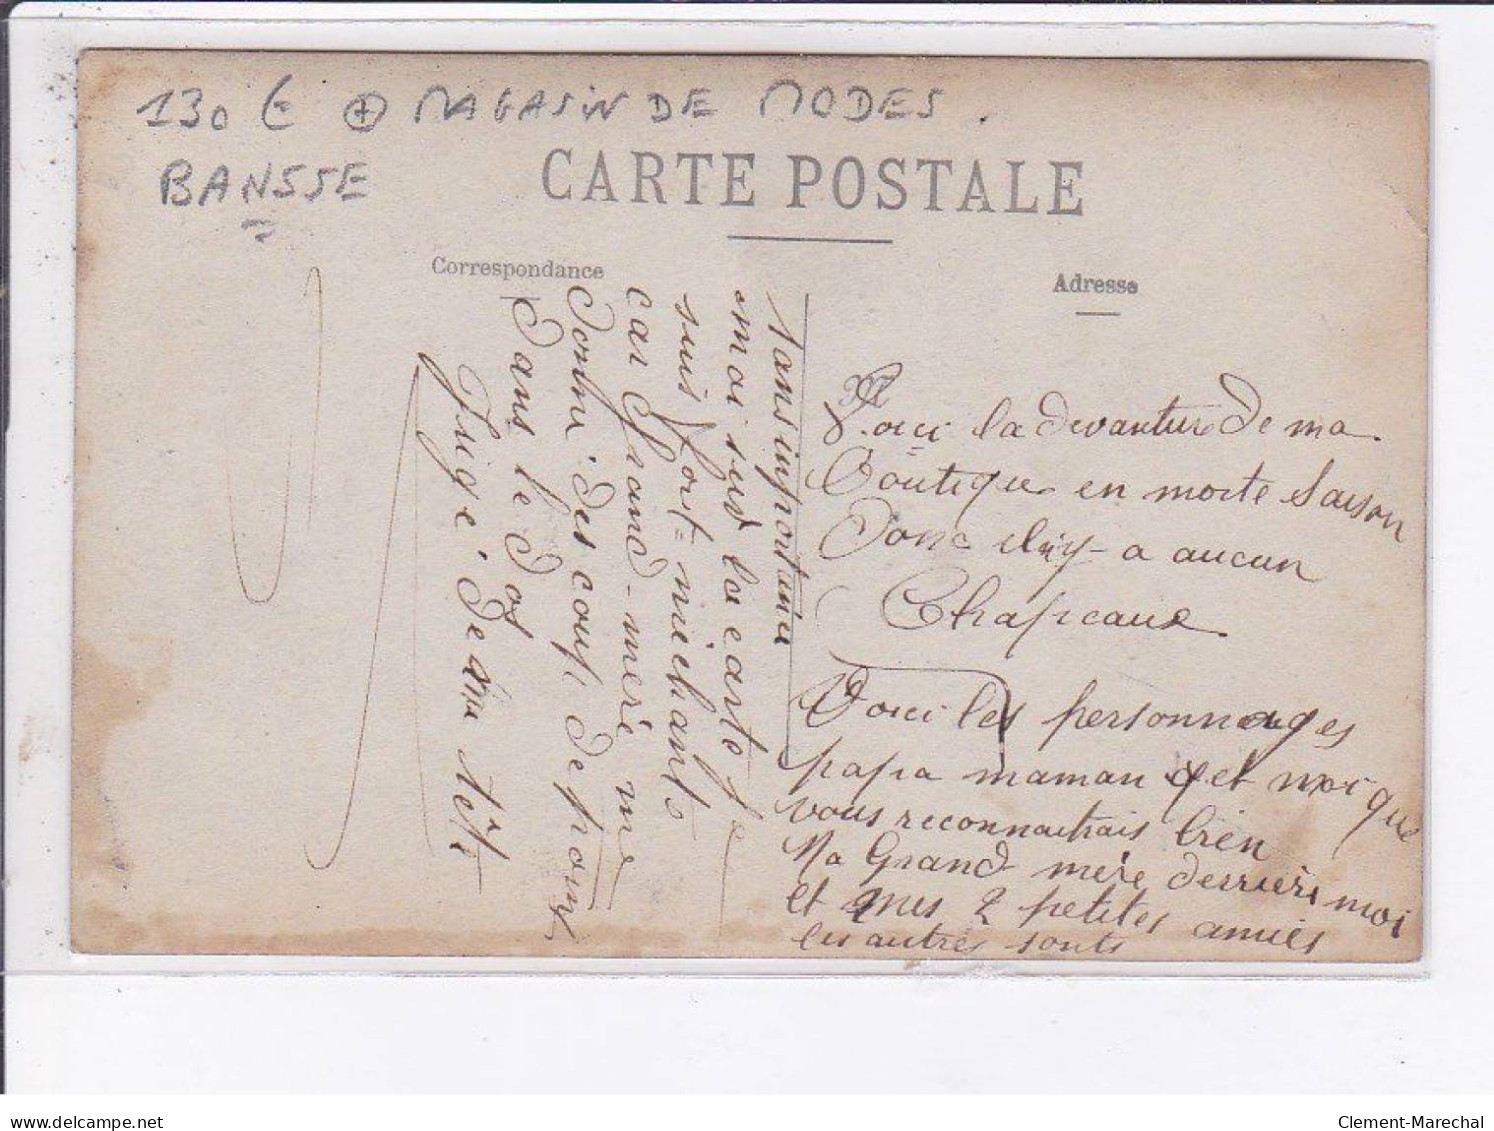 130 € + MAGASIN DE MODES.
BANSSE
CARTE POSTALE
Correspondance
Adresse
Voici la devanture de ma
Boutique en morte Saison
donc il n'y a aucun
Chapeaux
Voici les personnages
papa maman et moi que
vous reconnaitrais bien
Ma Grand mère derrière moi
et mes 2 petites amies
les autres sonts
sans importance
moi sur la carte je
suis fort michante
car Grand-mère me
donne des coup de poing
dans le dos
Juge de ma tête
delcampe.net
Clement-Marechal